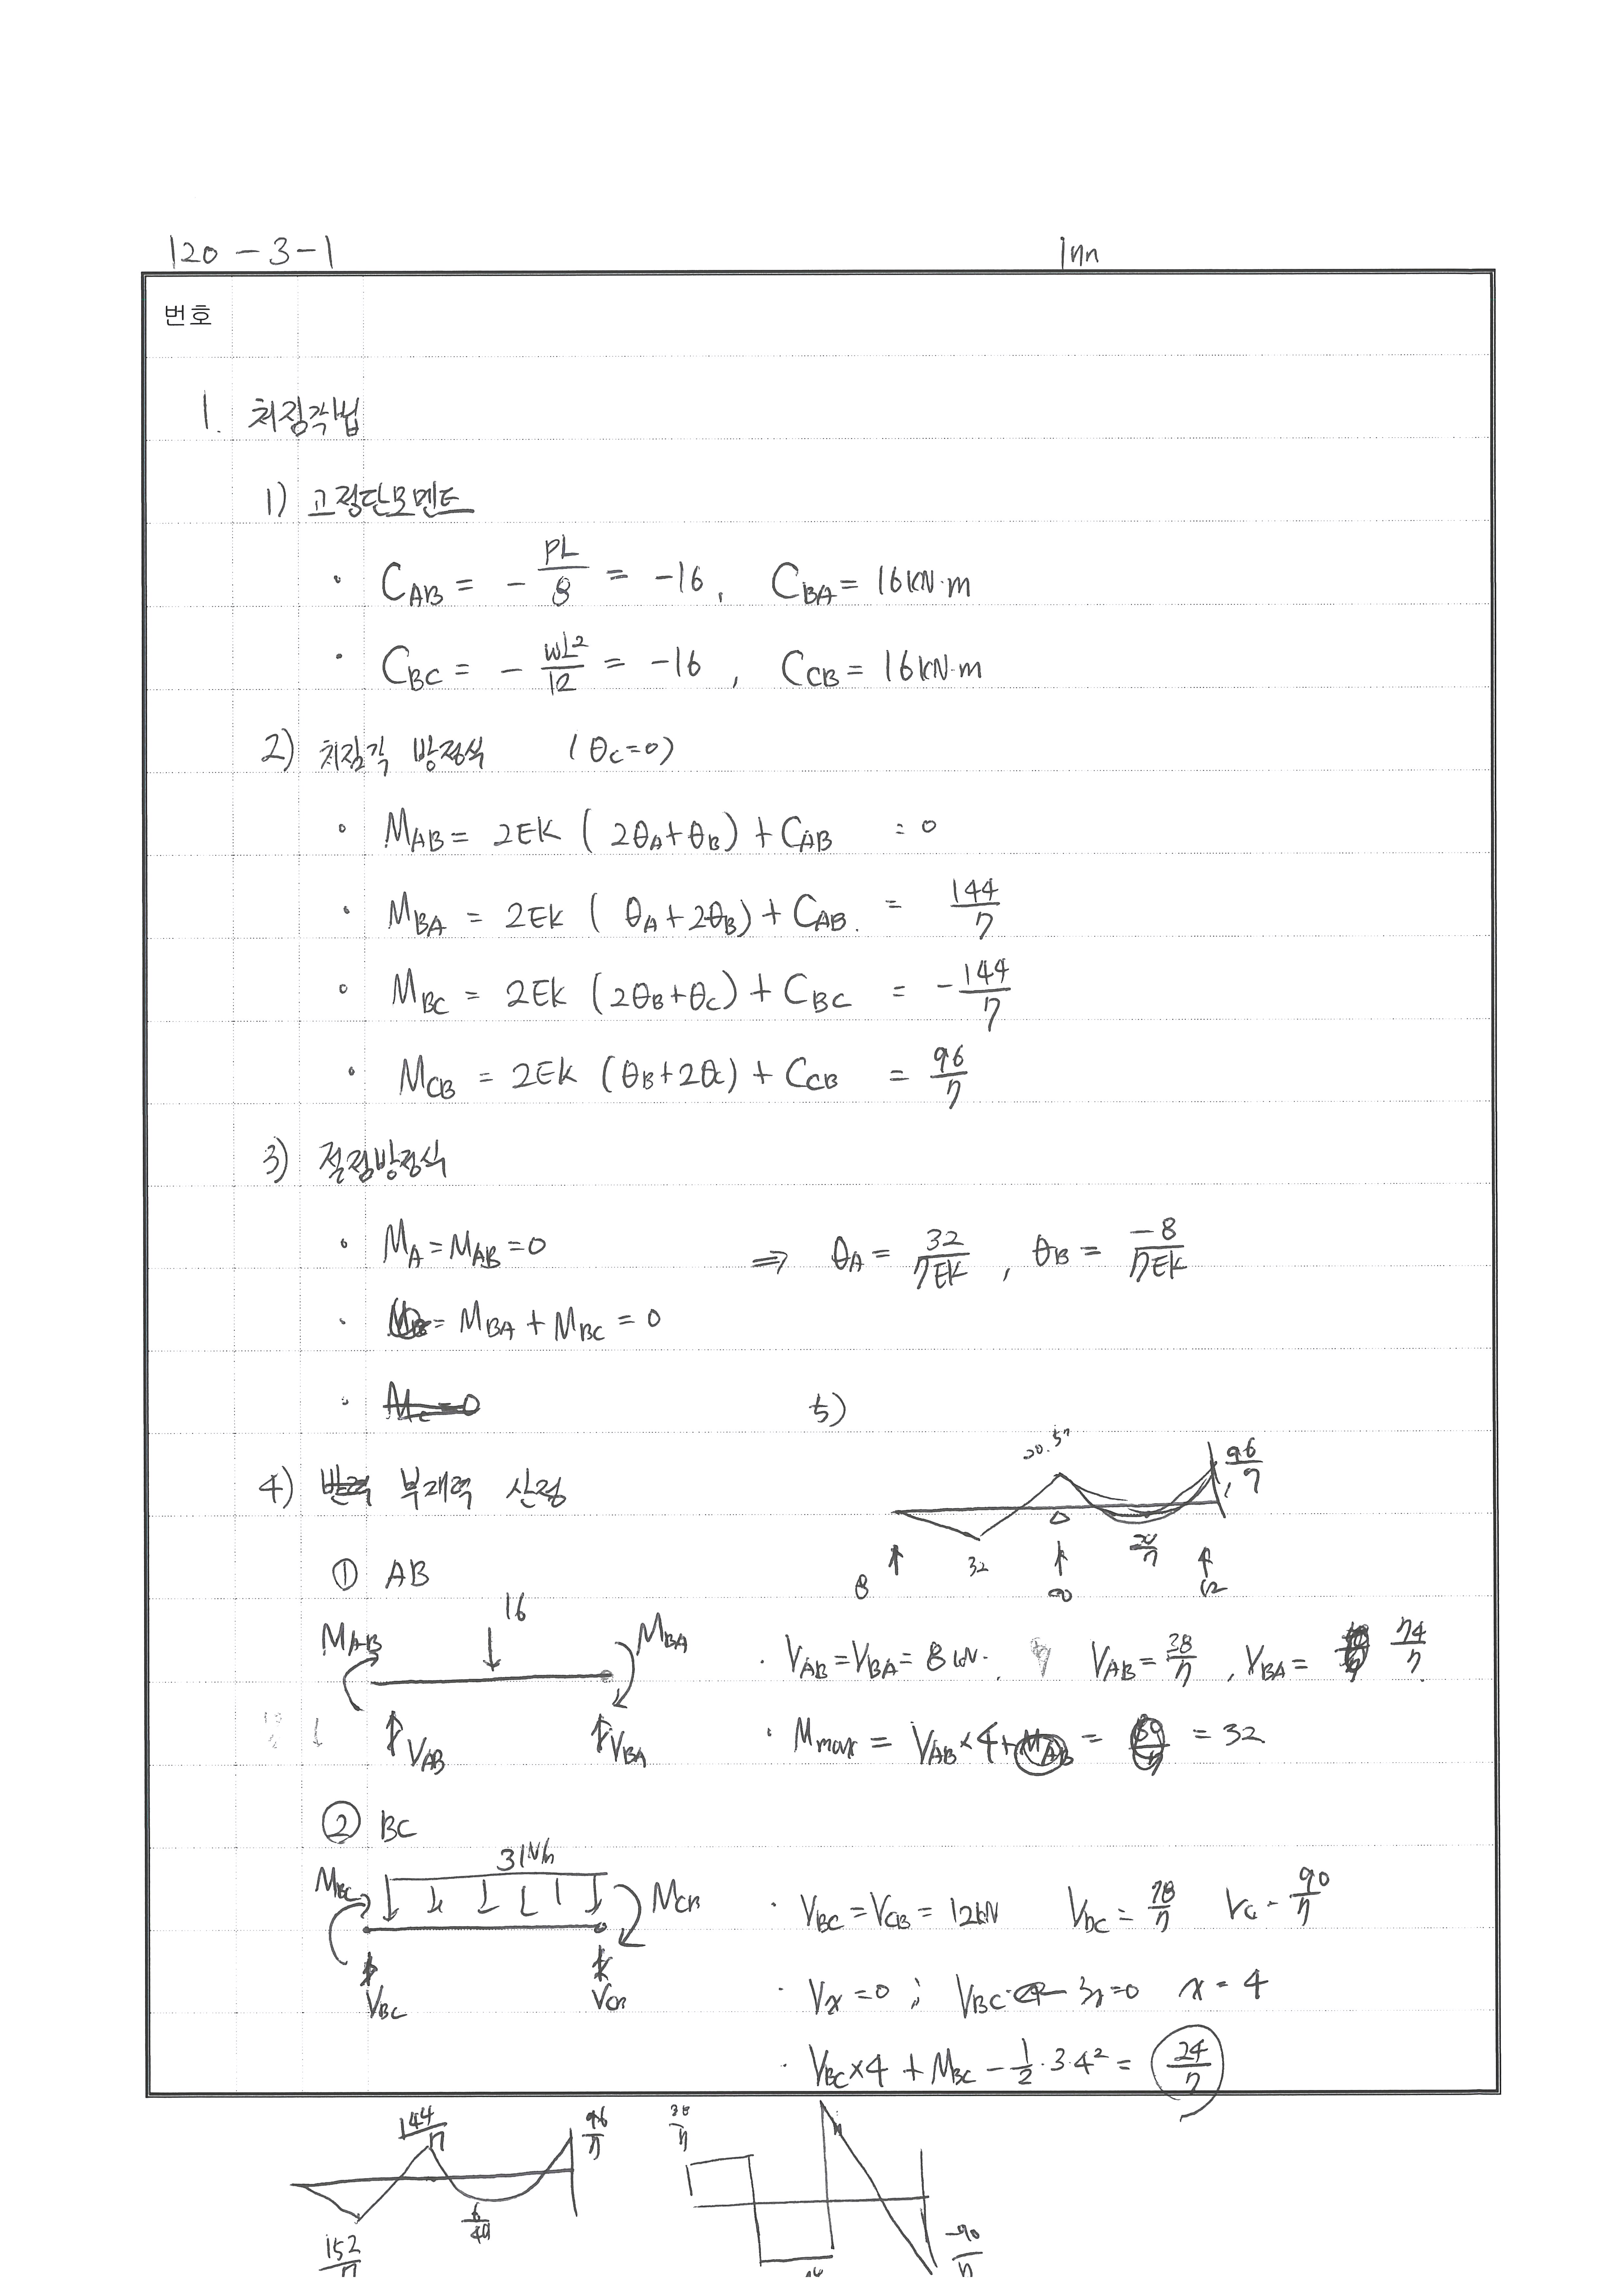 120 - 3 - 1
번호
1. 처짐각법
1) 고정단모멘트
· C_AB = - PL/8 = -16, C_BA = 16 kN·m
· C_BC = - wL²/12 = -16, C_CB = 16 kN·m
2) 처짐각 방정식 (θ_C=0)
· M_AB = 2EK (2θ_A+θ_B) + C_AB = 0
· M_BA = 2EK (θ_A+2θ_B) + C_AB. = 144/7
· M_BC = 2EK (2θ_B+θ_C) + C_BC = -144/7
· M_CB = 2EK (θ_B+2θ_C) + C_CB = 96/7
3) 절점방정식
· M_A = M_AB = 0 ⇒ θ_A = 32/7EK, θ_B = -8/7EK
· = M_BA + M_BC = 0
· M_C = 0
5)
20.57
96/7
32
8
12
4) 부재력 산정
① AB
16
M_AB
M_BA
V_AB
V_BA
· V_AB = V_BA = 8 kN. V_AB = 38/7, V_BA = 74/7
· M_max = V_AB×4+M_AB = = 32
② BC
3kN/m
M_BC
M_CB
V_BC
V_CB
· V_BC = V_CB = 12kN V_BC = 78/7 V_C - 90/7
· V_x = 0 ; V_BC - 3x=0 x = 4
· V_BC×4 + M_BC - 1/2·3·4² = 24/7
144/7
96/7
152/7
38/7
-90/7